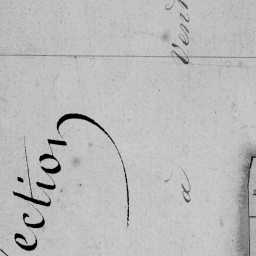 ection
à Vend